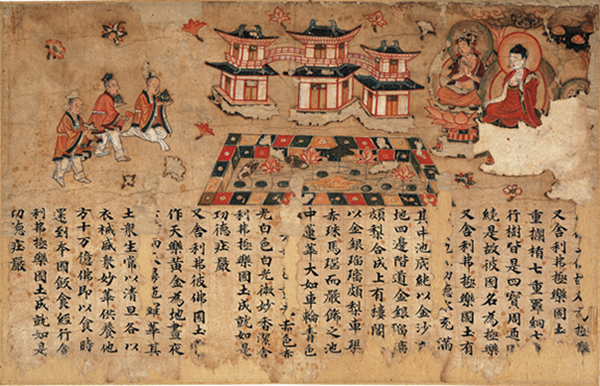 為極樂
又舍利弗極樂國土
重欄楯七重羅網七
行樹皆是四寶周迊
繞是故彼國名為極樂
又舍利弗極樂國土有
充滿
其中池底純以金沙
地四邊階道金銀瑠璃
頗梨合成上有樓閣
以金銀瑠璃頗梨車𤦲
赤珠馬瑙而嚴飾之池
中蓮華大如車輪青色
赤色赤
光白色白光微妙香潔舍
利弗極樂國土成就如是
功德莊嚴
又舍利弗彼佛國土
作天樂黃金為地晝夜
羅華其
土眾生常以清旦各以
衣裓盛眾妙華供養他
方十萬億佛即以食時
還到本國飯食經行舍
利弗極樂國土成就如是
功德莊嚴